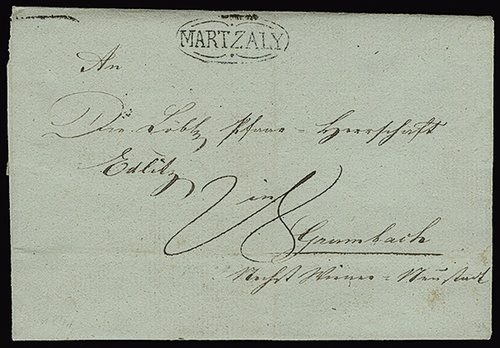 MARTZALY
An
Die Löbl. Pfarr-Herrschaft
Edlitz
in
8
Grumbach
Nechst Wiener-Neustadt